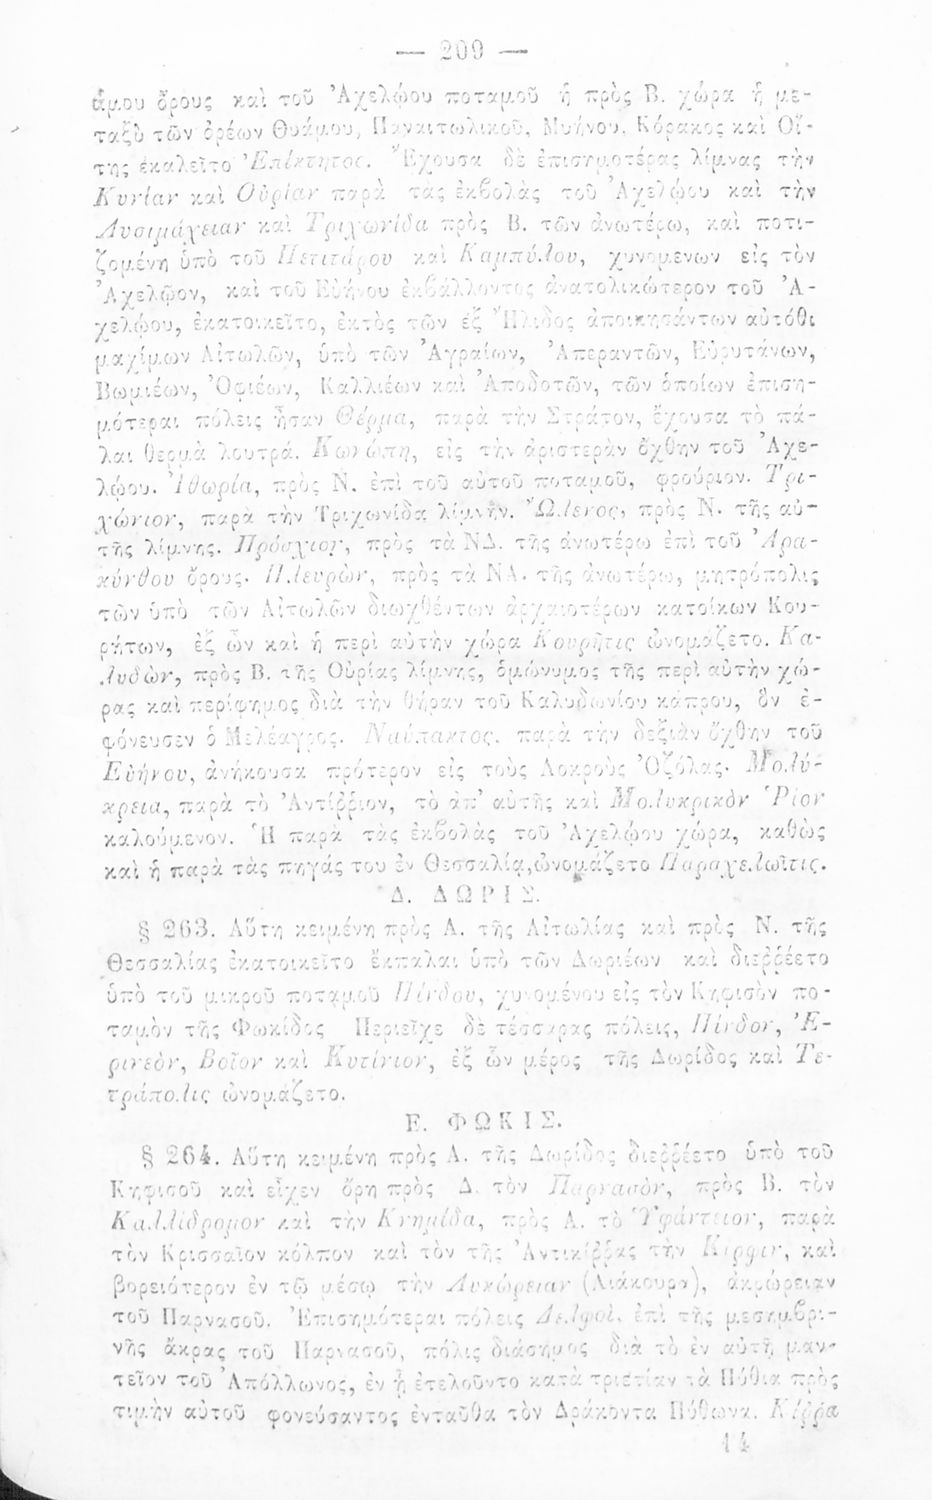 — 209 —
άμου ὄρους καὶ τοῦ Ἀχελῴου ποταμοῦ ἡ πρὸς Β. χώρα ἡ με-
ταξὺ τῶν ὀρέων Θυάμου, Παναιτωλικοῦ, Μυήνου, Κόρακος καὶ Οἴ-
της ἐκαλεῖτο Ἐπίκτητος. Ἔχουσα δὲ ἐπισημοτέρας λίμνας τὴν
Κυνίαν καὶ Οὐρίαν παρὰ τὰς ἐκβολὰς τοῦ Ἀχελῴου καὶ τὴν
Λυσιμάχειαν καὶ Τριχωνίδα πρὸς Β. τῶν ἀνωτέρω, καὶ ποτι-
ζομένη ὑπὸ τοῦ Πετιτάρου καὶ Καμπύλου, χυνομένων εἰς τὸν
Ἀχελῷον, καὶ τοῦ Εὐήνου ἐκβάλλοντος ἀνατολικώτερον τοῦ Ἀ-
χελῴου, ἐκατοικεῖτο, ἐκτὸς τῶν ἐξ Ἤλιδος ἀποικησάντων αὐτόθι
μαχίμων Αἰτωλῶν, ὑπὸ τῶν Ἀγραίων, Ἀπεραντῶν, Εὐρυτάνων,
Βωμιέων, Ὀφιέων, Καλλιέων καὶ Ἀποδοτῶν, τῶν ὁποίων ἐπιση-
μότεραι πόλεις ἦσαν Θέρμα, παρὰ τὴν Στράτον, ἔχουσα τὸ πά-
λαι θερμὰ λουτρά. Κωνώπη, εἰς τὴν ἀριστερὰν ὄχθην τοῦ Ἀχε-
λῴου. Ἰθωρία, πρὸς Ν. ἐπὶ τοῦ αὐτοῦ ποταμοῦ, φρούριον. Τρι-
χώνιον, παρὰ τὴν Τριχωνίδα λίμνην. Ὤλενος, πρὸς Ν. τῆς αὐ-
τῆς λίμνης. Πρόσχιον, πρὸς τὰ ΝΔ. τῆς ἀνωτέρω ἐπὶ τοῦ Ἀρα-
κύνθου ὄρους. Πλευρὼν, πρὸς τὰ ΝΑ. τῆς ἀνωτέρω, μητρόπολις
τῶν ὑπὸ τῶν Αἰτωλῶν διωχθέντων ἀρχαιοτέρων κατοίκων Κου-
ρήτων, ἐξ ὧν καὶ ἡ περὶ αὐτὴν χώρα Κουρῆτις ὠνομάζετο. Κα-
λυδὼν, πρὸς Β. τῆς Οὐρίας λίμνης, ὁμώνυμος τῆς περὶ αὐτὴν χώ-
ρας καὶ περίφημος διὰ τὴν θήραν τοῦ Καλυδωνίου κάπρου, ὃν ἐ-
φόνευσεν ὁ Μελέαγρος. Ναύπακτος, παρὰ τὴν δεξιὰν ὄχθην τοῦ
Εὐήνου, ἀνήκουσα πρότερον εἰς τοὺς Λοκροὺς Ὀζόλας. Μολύ-
κρεια, παρὰ τὸ Ἀντίῤῥιον, τὸ ἀπ' αὐτῆς καὶ Μολυκρικὸν Ῥίον
καλούμενον. Ἡ παρὰ τὰς ἐκβολὰς τοῦ Ἀχελῴου χώρα, καθὼς
καὶ ἡ παρὰ τὰς πηγάς του ἐν Θεσσαλίᾳ, ὠνομάζετο Παραχελωῖτις.
Δ. ΔΩΡΙΣ.
§ 263. Αὕτη κειμένη πρὸς Α. τῆς Αἰτωλίας καὶ πρὸς Ν. τῆς
Θεσσαλίας ἐκατοικεῖτο ἔκπαλαι ὑπὸ τῶν Δωριέων καὶ διεῤῥέετο
ὑπὸ τοῦ μικροῦ ποταμοῦ Πίνδου, χυνομένου εἰς τὸν Κηφισὸν πο-
ταμὸν τῆς Φωκίδος Περιεῖχε δὲ τέσσαρας πόλεις, Πίνδον, Ἐ-
ρινεὸν, Βοῖον καὶ Κυτίνιον, ἐξ ὧν μέρος τῆς Δωρίδος καὶ Τε-
τράπολις ὠνομάζετο.
Ε. ΦΩΚΙΣ.
§ 264. Αὕτη κειμένη πρὸς Α. τῆς Δωρίδος διεῤῥέετο ὑπὸ τοῦ
Κηφισοῦ καὶ εἶχεν ὄρη πρὸς Δ. τὸν Παρνασὸν, πρὸς Β. τὸν
Καλλίδρομον καὶ τὴν Κνημίδα, πρὸς Α. τὸ Ὑφάντειον, παρὰ
τὸν Κρισσαῖον κόλπον καὶ τὸν τῆς Ἀντικίῤῥας τὴν Κίρφιν, καὶ
βορειότερον ἐν τῷ μέσῳ τὴν Λυκώρειαν (Λιάκουρα), ἀκρώρειαν
τοῦ Παρνασοῦ. Ἐπισημότεραι πόλεις Δελφοὶ, ἐπὶ τῆς μεσημβρι-
νῆς ἄκρας τοῦ Παρνασοῦ, πόλις διάσημος διὰ τὸ ἐν αὐτῇ μαν-
τεῖον τοῦ Ἀπόλλωνος, ἐν ᾗ ἐτελοῦντο κατὰ τριετίαν τὰ Πύθια πρὸς
τιμὴν αὐτοῦ φονεύσαντος ἐνταῦθα τὸν Δράκοντα Πύθωνα. Κίῤῥα
14